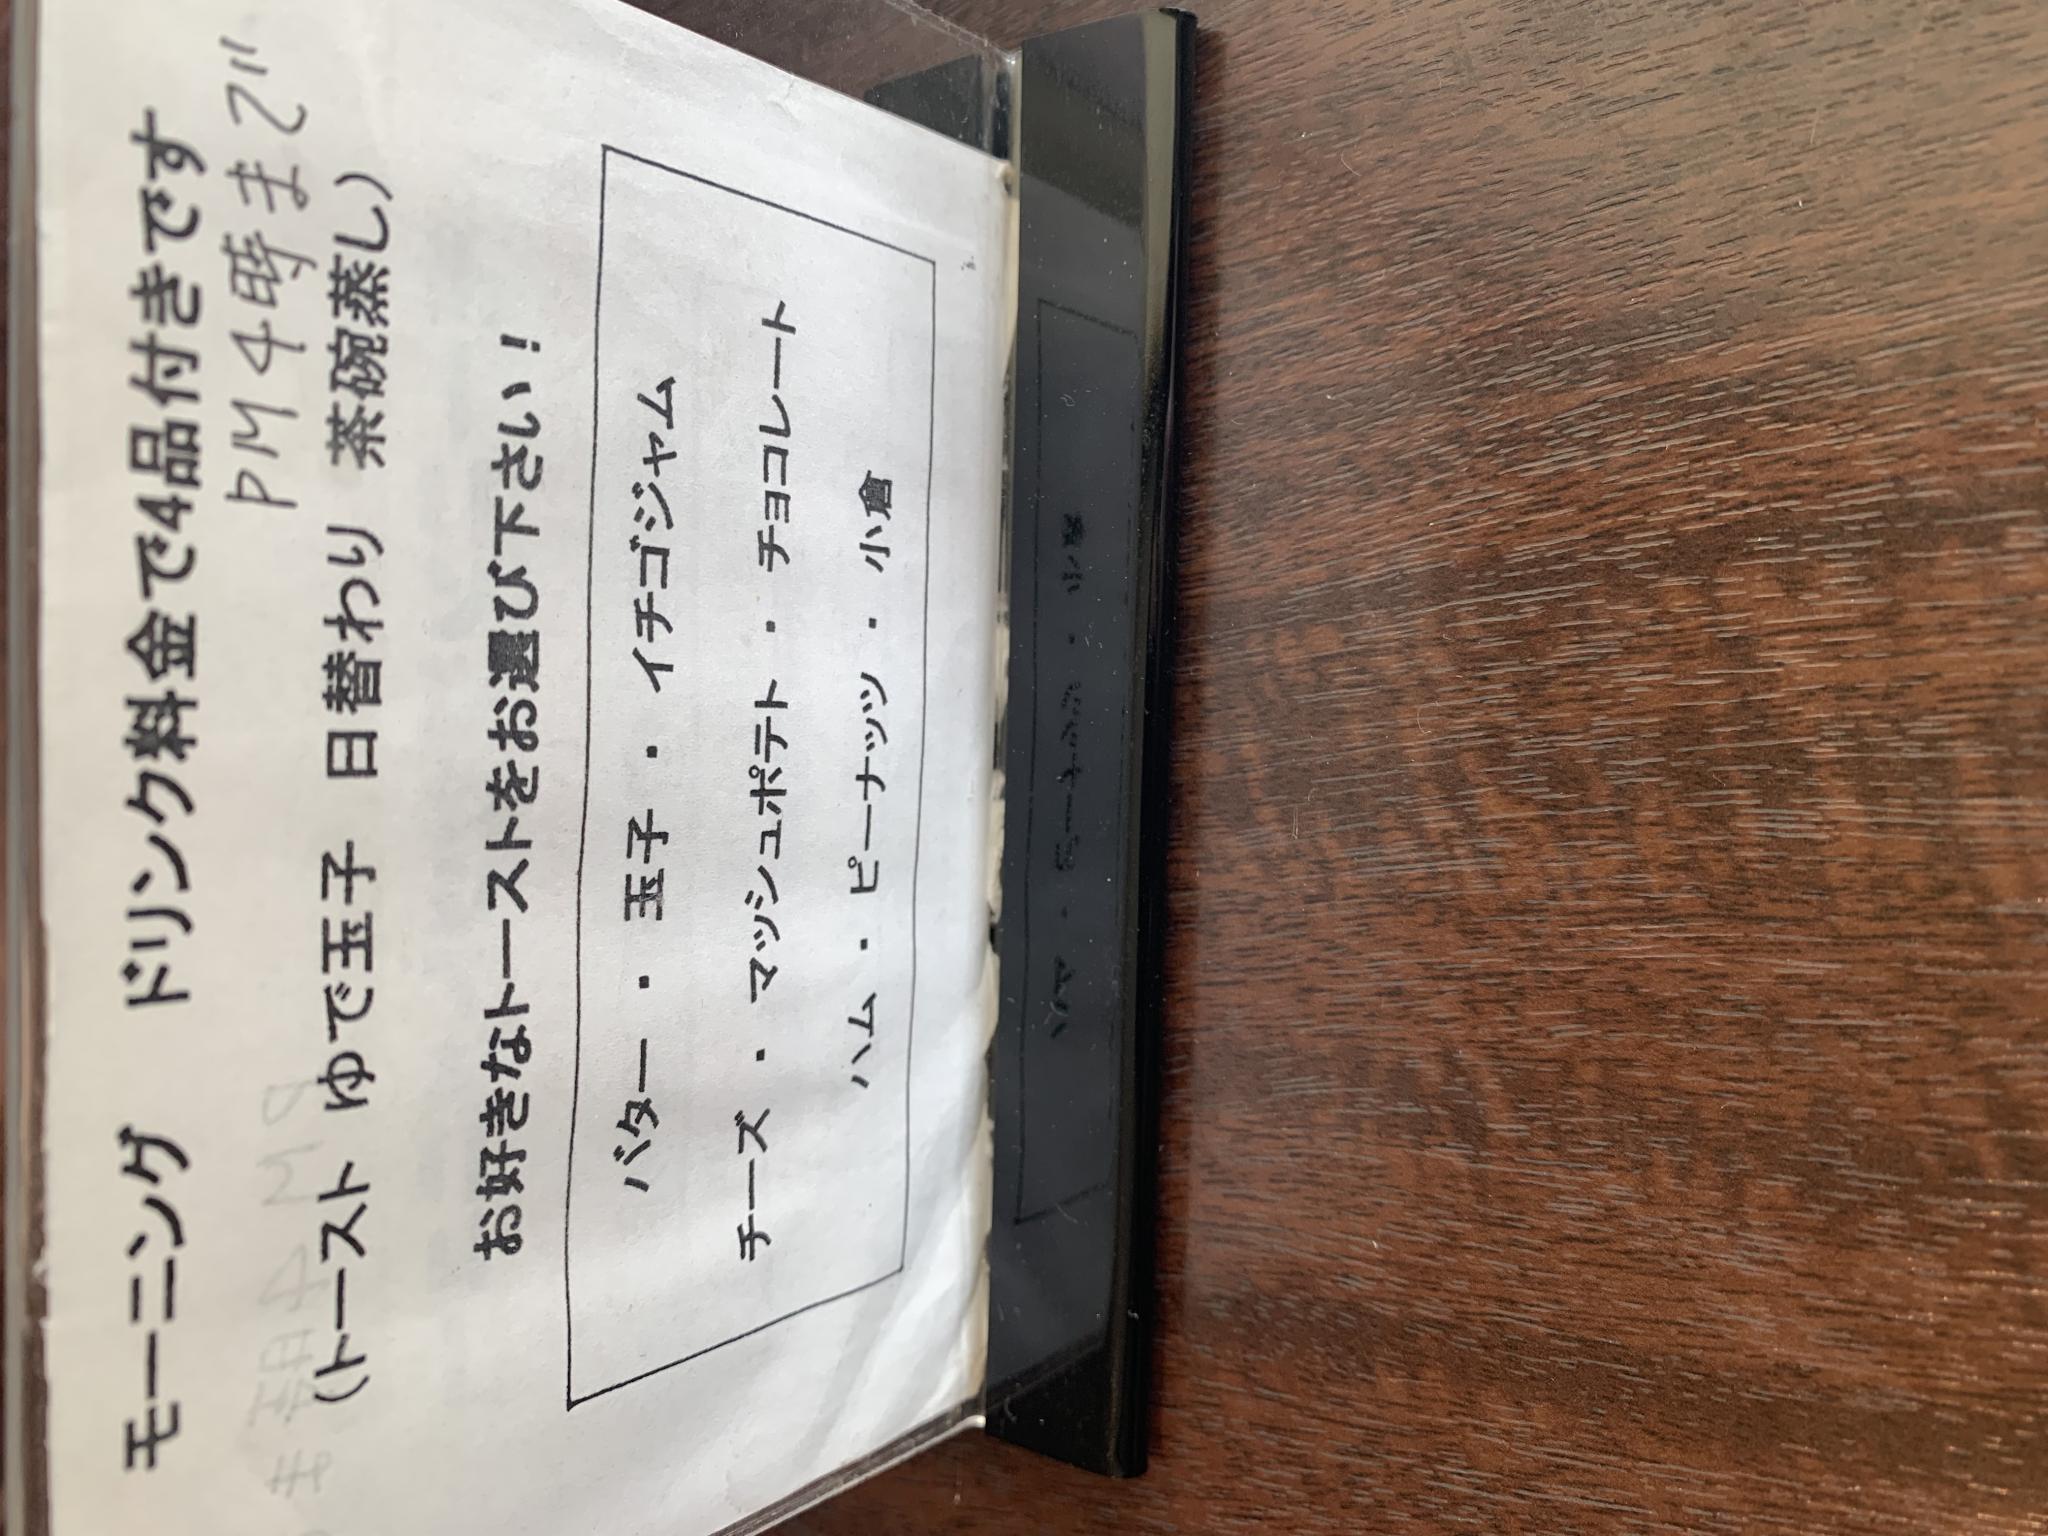 モーニング ドリンク料金で4品付きです
PM4時まで
(トースト ゆで玉子 日替わり 茶碗蒸し)
お好きなトーストをお選び下さい！
バター ・ 玉子 ・ イチゴジャム
チーズ ・ マッシュポテト ・ チョコレート
ハム ・ ピーナッツ ・ 小倉